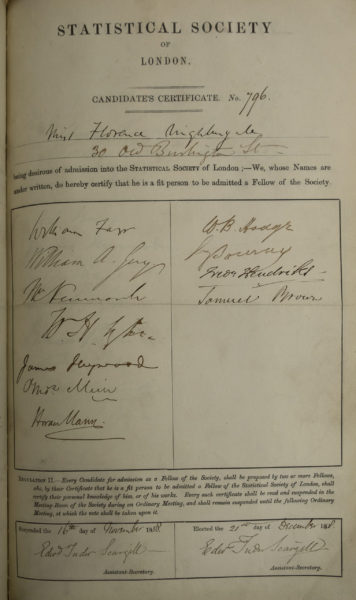 STATISTICAL SOCIETY
OF
LONDON.
CANDIDATE'S CERTIFICATE. No. 796.
Miss Florence Nightingale
30 Old Burlington St
being desirous of admission into the STATISTICAL SOCIETY of London ;—We, whose Names are
under written, do hereby certify that he is a fit person to be admitted a Fellow of the Society.
William Farr
William A. Guy
James Heywood
Horace Mann
W. B. Hodge
Fredk Hendriks
Samuel Brown
REGULATION II.—Every Candidate for admission as a Fellow of the Society, shall be proposed by two or more Fellows,
who, by their Certificate that he is a fit person to be admitted a Fellow of the Statistical Society of London, shall
certify their personal knowledge of him or of his works. Every such certificate shall be read and suspended in the
Meeting Room of the Society during an Ordinary Meeting, and shall remain suspended until the following Ordinary
Meeting, at which the vote shall be taken upon it.
Suspended the 16th day of November 1858.
Edwd Tudor Scargill
Assistant-Secretary.
Elected the 21st day of December 1858.
Edwd Tudor Scargill
Assistant-Secretary.